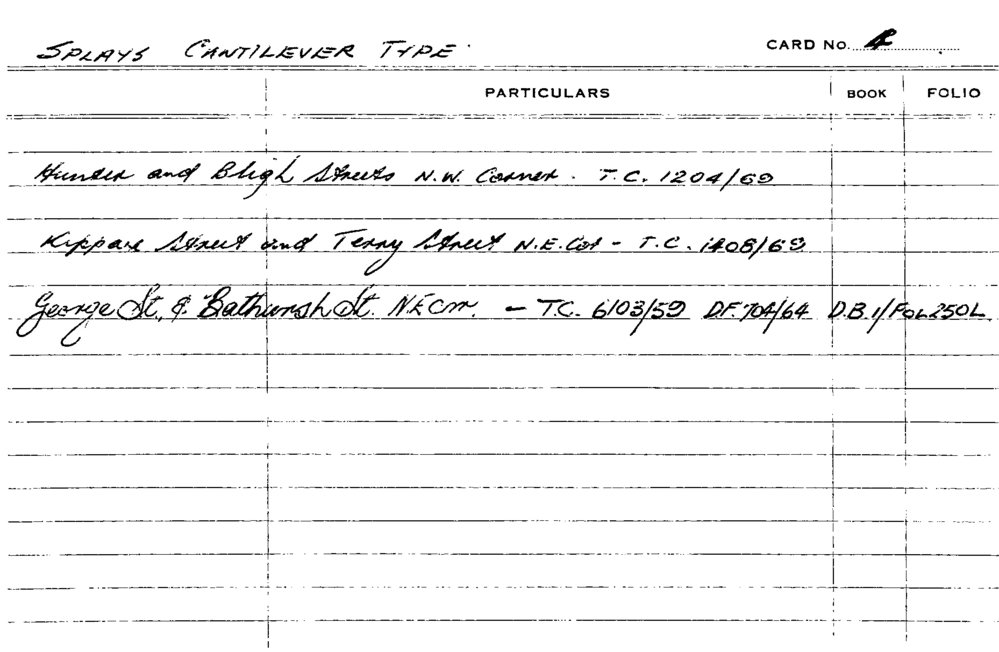 SPLAYS CANTILEVER TYPE. CARD No. 4
PARTICULARS BOOK FOLIO
Hunter and Bligh Streets N.W. Corner. T.C. 1204/69
Kippax Street and Terry Street N.E. Cor - T.C. 1408/69
George St. & Bathurst St. N E Cnr. - T.C. 6103/59 D.F. 704/64 D.B.1/FOL250L